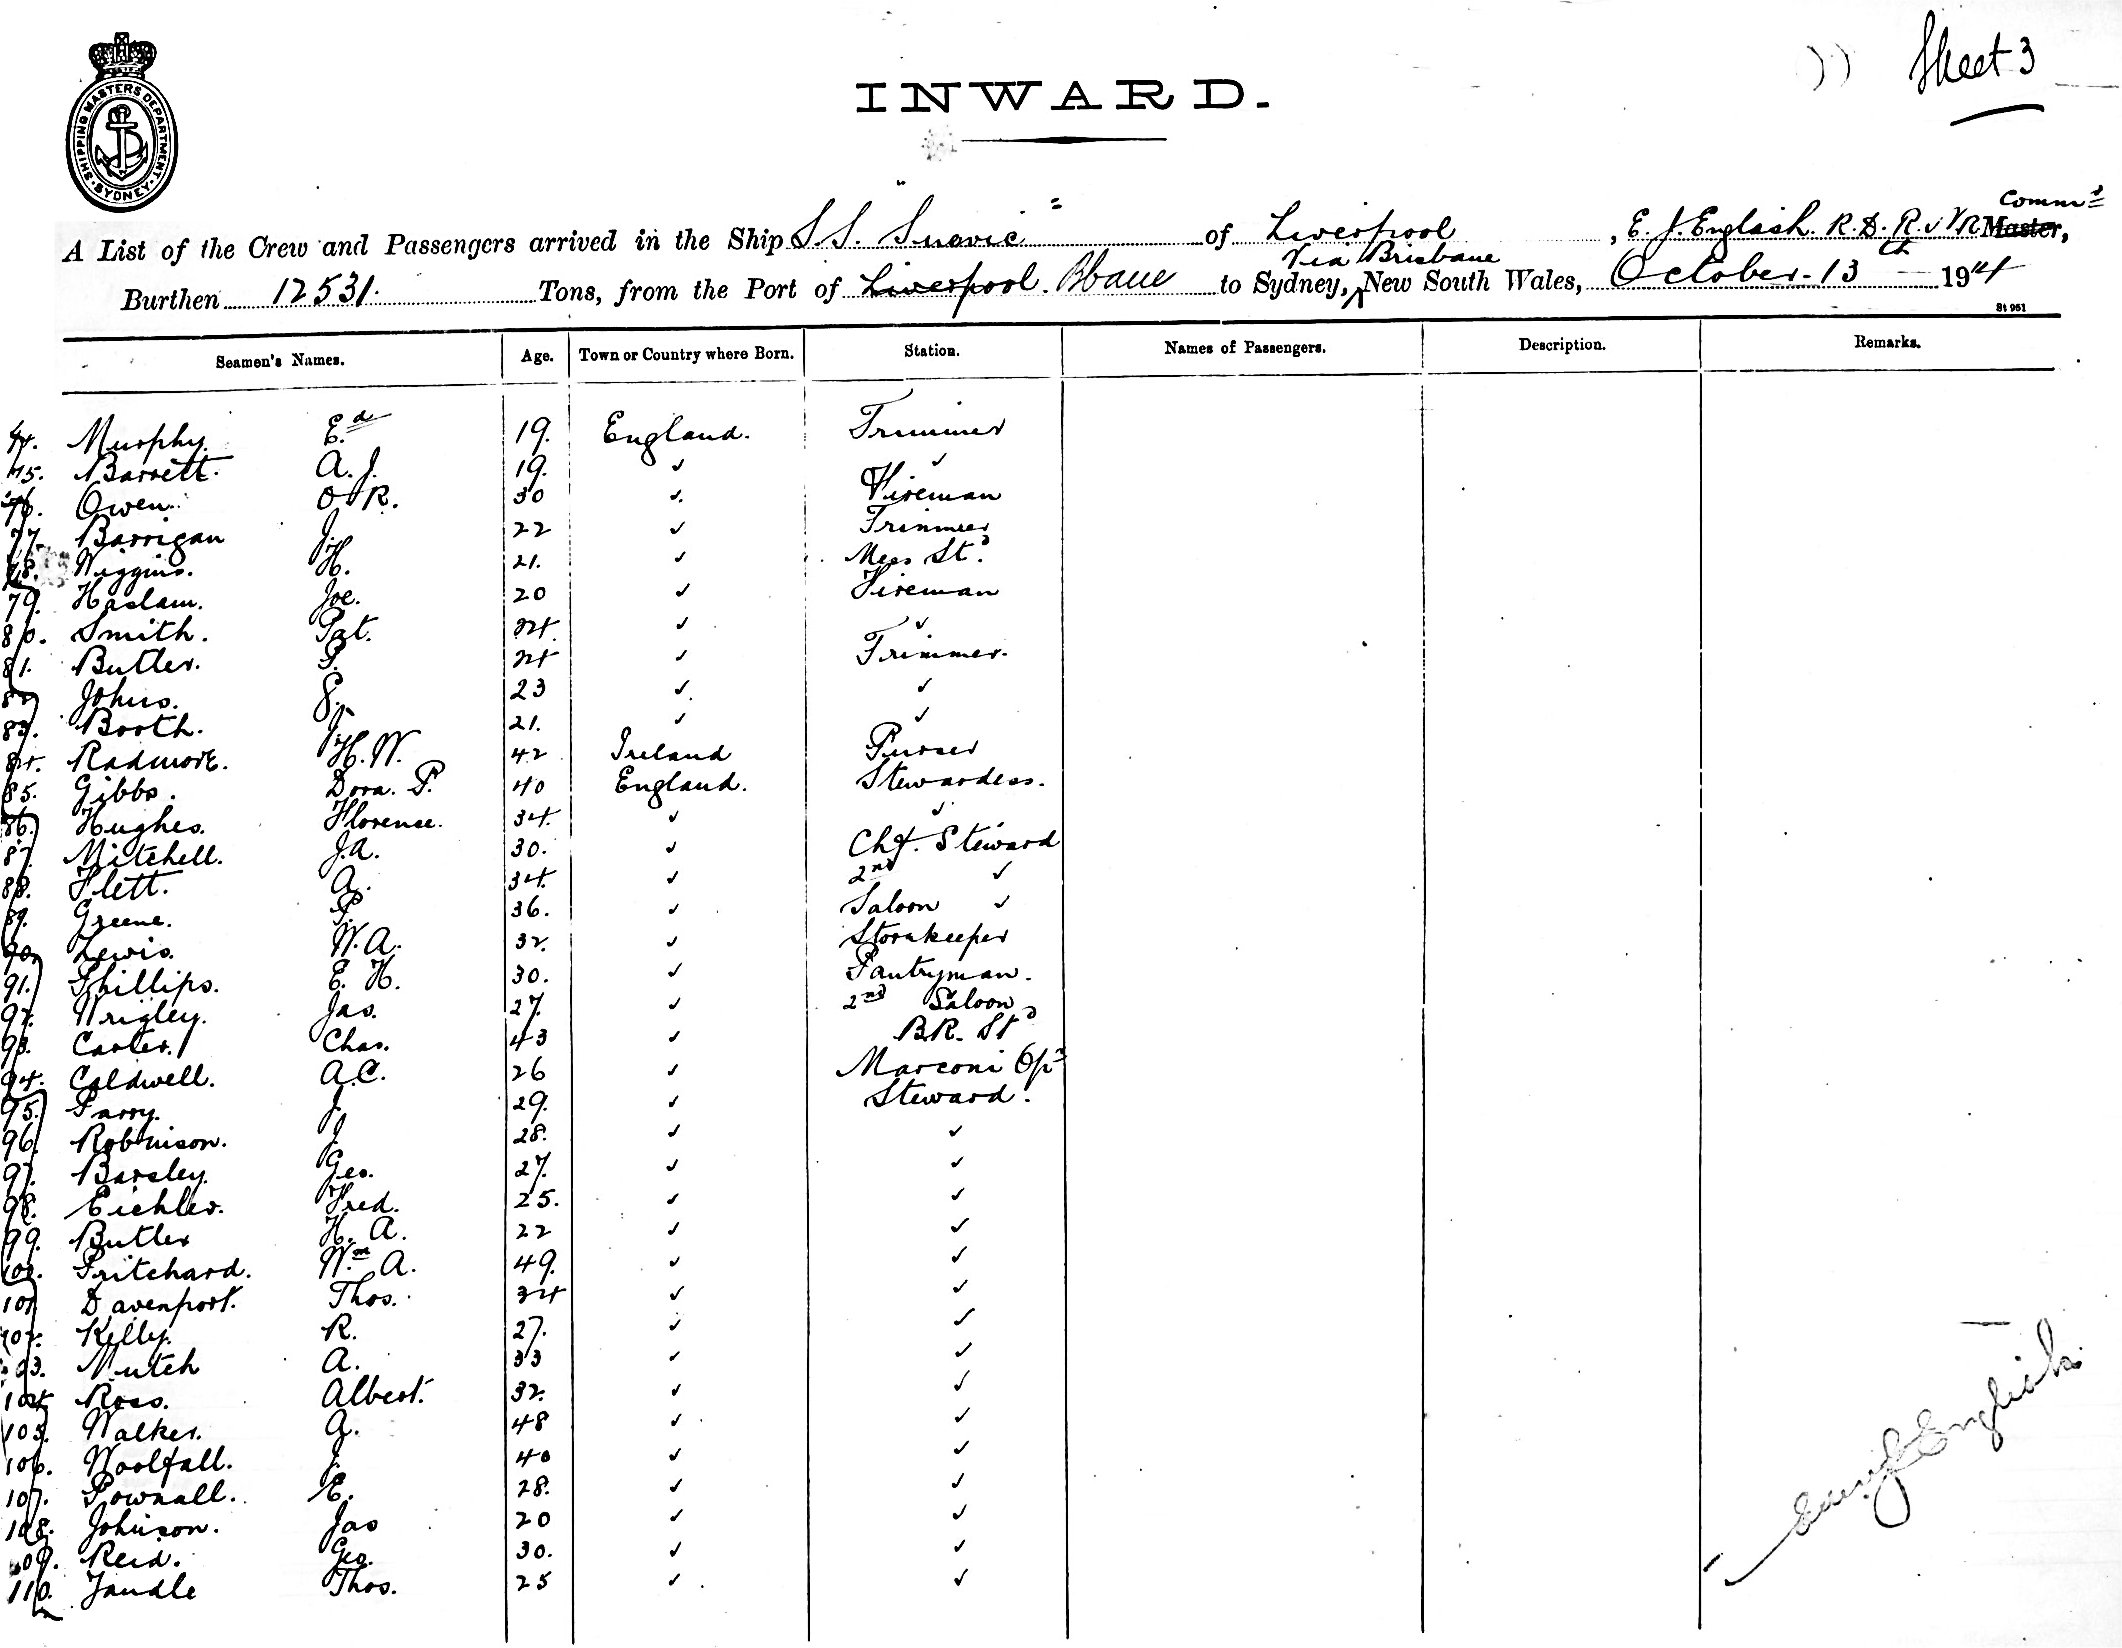 Sheet 3
SHIPPING MASTERS DEPARTMENT. SYDNEY
INWARD.
A List of the Crew and Passengers arrived in the Ship S.S. "Suevic" of Liverpool, E. J. English. R.D. R.N.R Master, Comm^r
Via Brisbane
Burthen 12531. Tons, from the Port of Liverpool. Bbane to Sydney, New South Wales, October 13th 1914
St 951
Seamen's Names. Age. Town or Country where Born. Station. Names of Passengers. Description. Remarks.
74. Murphy. Ed 19. England. Trimmer
75. Barrett. A. J. 19. ✓ ✓
76. Owen. O R. 30 ✓ Fireman
77. Barrigan J. 22 ✓ Trimmer
78. Wiggins. H. 21. ✓ Mess Std.
79. Haslam. Joe. 20 ✓ Fireman
80. Smith. Pat. 34. ✓ ✓
81. Butler. P. 34 ✓ Trimmer.
82 Johns. 23 ✓ ✓
83. Booth. J. 21. ✓ ✓
84. Radmore. H. W. 42 Ireland Purser
85. Gibbs. Dora. P. 40 England. Stewardess.
86. Hughes. Florence. 34. ✓ ✓
87. Mitchell. J.A. 30. ✓ Chf. Steward
88. Flett. A. 34. ✓ 2nd ✓
89. Greene. P. 36. ✓ Saloon ✓
90. Lewis. W. A. 32. ✓ Storekeeper
91. Phillips. E. H. 30. ✓ Pantryman.
92. Wrigley. Jas. 27. ✓ 2nd Saloon
93. Carter. Chas. 43 ✓ B.R. Std
94. Caldwell. A.C. 26 ✓ Marconi Opr
95. Parry. J. 29. ✓ Steward.
96. Robinson. J 28. ✓ ✓
97. Barsley. Geo. 27. ✓ ✓
98. Eichler. Fred. 25. ✓ ✓
99. Butler H. A. 22 ✓ ✓
100. Pritchard. Wm A. 49. ✓ ✓
101 Davenport. Thos. 34 ✓ ✓
102. Kelly. R. 27. ✓ ✓
103. Nutch A. 33 ✓ ✓
104 Ross. Albert. 32. ✓ ✓
105. Walker. A. 48 ✓ ✓
106. Woolfall. J. 40 ✓ ✓
107. Pownall. E. 28. ✓ ✓
108. Johnson. Jas 20 ✓ ✓
109. Reid. Geo. 30. ✓ ✓
110. Jandle Thos. 25 ✓ ✓
English